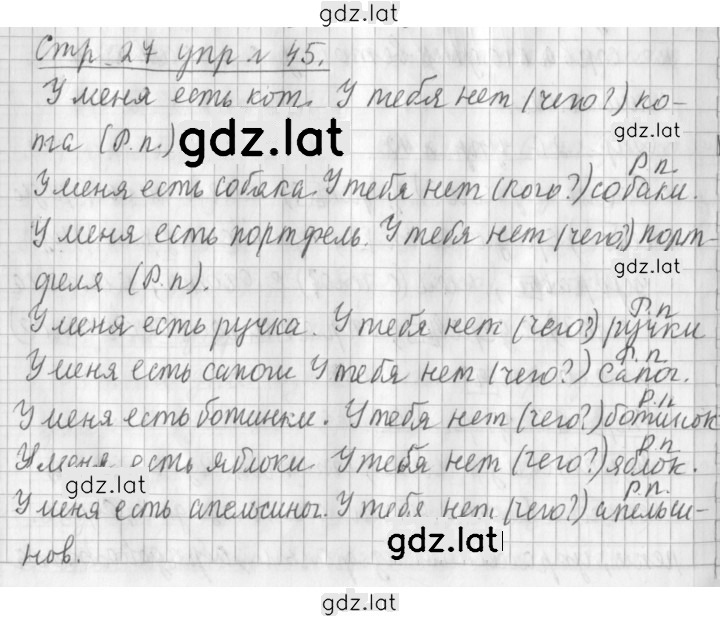 gdz.lat
Стр. 27 упр № 45.
У меня есть кот. У тебя нет (чего?) ко-
gdz.lat
та (Р.п.)
gdz.lat
Р.п.
У меня есть собака. У тебя нет (кого?) собаки.
У меня есть портфель. У тебя нет (чего?) порт-
gdz.lat
феля (Р.п).
Р.п
У меня есть ручка. У тебя нет (чего?) ручки
Р.п
У меня есть сапоги У тебя нет (чего?) сапог.
Р.п.
У меня есть ботинки. У тебя нет (чего?) ботинок
Р.п
У меня есть яблоки У тебя нет (чего?) яблок.
gdz.lat
Р.п.
У меня есть апельсины. У тебя нет (чего?) апельси-
gdz.lat
нов.
gdz.lat